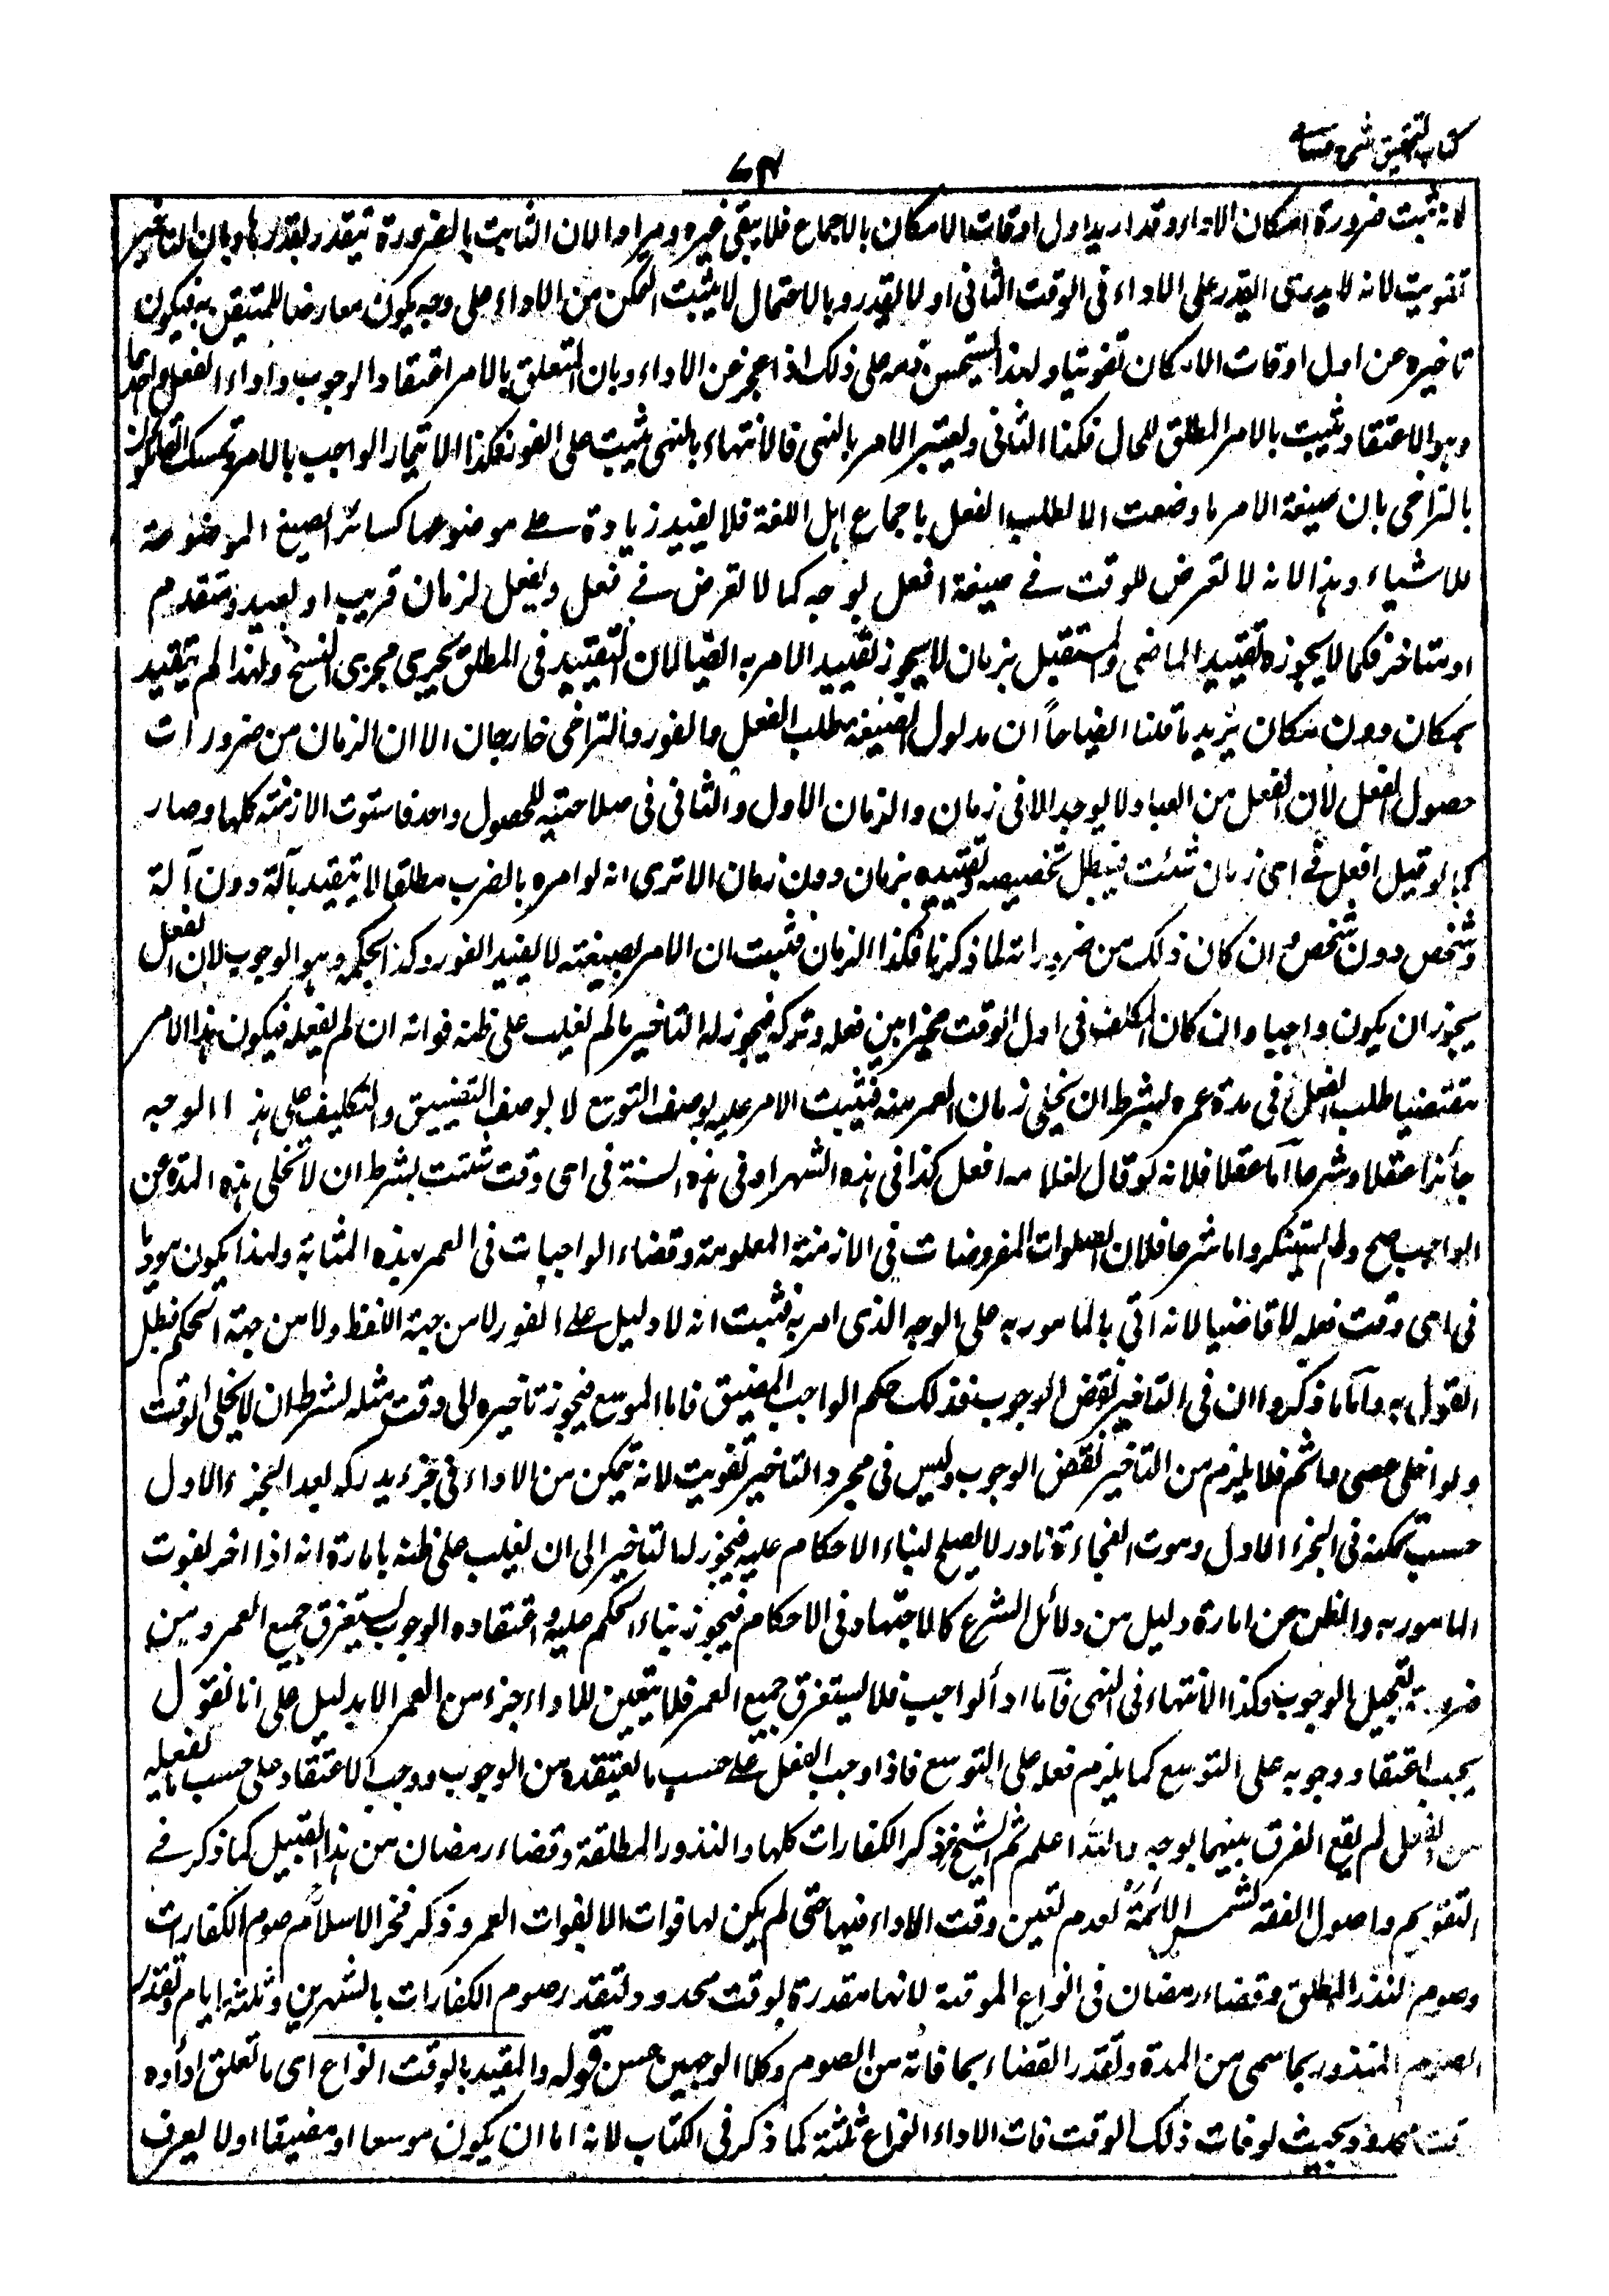 كتاب التحقيق شرح حسامي
٧٤
لانه ثبت ضرورة امكان الاداء وقد اريد اول اوقات الامكان بالاجماع فلا يبقى غيره مرادا لان الثابت بالضرورة يتقدر بقدرها وبان التاخير
تفويت لانه لا يدرى القدر على الاداء فى الوقت الثانى او لا يقدر وبالاحتمال لا يثبت التمكن من الاداء على وجه يكون معارضا للمتيقن به فيكون
تاخيره عن اول اوقات الامكان تفويتا ولهذا يستحسن ذمه على ذلك اذا عجز عن الاداء وبان المتعلق بالامر اعتقاد الوجوب واداء الفعل واحدهما
وهو الاعتقاد يثبت بالامر المطلق للحال فكذا الثانى ويعتبر الامر بالنهى فالانتهاء بالنهى يثبت على الفور فكذا الايتمار الواجب بالامر وتمسك القائلون
بالتراخى بان صيغة الامر ما وضعت الا لطلب الفعل باجماع اهل اللغة فلا يفيد زيادة على موضوعها كسائر الصيغ الموضوعة
للاشياء وهذا لانه لا تعرض للوقت فى صيغة افعل بوجه كما لا تعرض فى فعل ويفعل لزمان قريب او بعيد ومتقدم
او متاخر فكما لا يجوز تقييد الماضى والمستقبل بزمان لا يجوز تقييد الامر به ايضا لان التقييد فى المطلق يجرى مجرى النسخ ولهذا لم يتقيد
بمكان دون مكان يزيد ما قلنا ايضاحا ان مدلول الصيغة طلب الفعل والفور والتراخى خارجان الا ان الزمان من ضرورات
حصول الفعل لان الفعل من العباد لا يوجد الا فى زمان والزمان الاول والثانى فى صلاحيته للحصول واحد فاستوت الازمنة كلها وصار
كما لو قيل افعل فى اى زمان شئت فيبطل تخصيصه وتقييده بزمان دون زمان الا ترى انه لو امره بالضرب مطلقا لا يتقيد بآلة دون آلة
وشخص دون شخص وان كان ذلك من ضروراته لما ذكرنا فكذا الزمان فثبت ان الامر بصيغته لا يفيد الفور وكذا بحكمه وهو الوجوب لان الفعل
يجوز ان يكون واجبا وان كان المكلف فى اول الوقت مخيرا بين فعله وتركه فيجوز له التاخير ما لم يغلب على ظنه فواته ان لم يفعله فيكون هذا الامر
مقتضيا طلب الفعل فى مدة عمره بشرط ان لا يخلى زمان العمر منه فيثبت الامر عليه بوصف التوسع لا بوصف التضييق والتكليف على هذا الوجه
جائز عقلا وشرعا اما عقلا فلانه لو قال لغلامه افعل كذا فى هذه الشهر او فى هذه السنة فى اى وقت شئت بشرط ان لا تخلى هذه المدة عن
الواجب صح ولم يستنكر واما شرعا فلان الصلوات المفروضات فى الازمنة المعلومة وقضاء الواجبات فى العمر بهذه المثابة ولهذا يكون موديا
فى اى وقت فعله لا قاضيا لانه اتى بالمامور به على الوجه الذى امر به فثبت انه لا دليل على الفور لا من جهة اللفظ ولا من جهة الحكم فبطل
القول به واما ما ذكروا ان فى التاخير نقض الوجوب فذلك حكم الواجب المضيق فاما الموسع فيجوز تاخيره الى وقت مثله بشرط ان لا يخلى الوقت
ولو اخلى عصى واثم فلا يلزم من التاخير نقض الوجوب وليس فى مجرد التاخير تفويت لانه يتمكن من الاداء فى جزء يدركه بعد الجزء الاول
حسب تمكنه فى الجزء الاول وموت الفجاءة نادر لا يصلح لبناء الاحكام عليه فيجوز له التاخير الى ان يغلب على ظنه بامارة انه اذا اخر يفوت
المامور به والظن عن امارة دليل من دلائل الشرع كالاجتهاد فى الاحكام فيجوز بناء الحكم عليه واعتقاده الوجوب يستغرق جميع العمر ومن
ضرورته تعجيل الوجوب وكذا الانتهاء فى النهى فاما اداء الواجب فلا يستغرق جميع العمر فلا يتعين للاداء جزء من العمر الا بدليل على انا نقول
يجب اعتقاد وجوبه على التوسع كما يلزم فعله على التوسع فاذا وجب الفعل على حسب ما يعتقده من الوجوب ووجب الاعتقاد على حسب ما يفعله
من الفعل لم يقع الفرق بينهما بوجه والله اعلم ثم الشيخ ذكر الكفارات كلها والنذور المطلقة وقضاء رمضان من هذا القبيل كما ذكر فى
التقويم واصول الفقه لشمس الائمة لعدم تعين وقت الاداء فيها حتى لم يكن لها فوات الا بفوات العمر وذكر فخر الاسلام صوم الكفارات
وصوم النذر المطلق وقضاء رمضان فى انواع الموقتة لانها مقدرة بوقت محدود لتقدر صوم الكفارات بالشهرين وثلثة ايام وتقدر
الصوم المنذور بما سمى من المدة وتقدر القضاء بما فاته من الصوم وكلا الوجهين حسن قوله والمقيد بالوقت انواع اى ما تعلق اداؤه
بوقت محدود بحيث لو فات ذلك الوقت فات الاداء انواع ثلثة كما ذكر فى الكتاب لانه اما ان يكون موسعا او مضيقا او لا يعرف